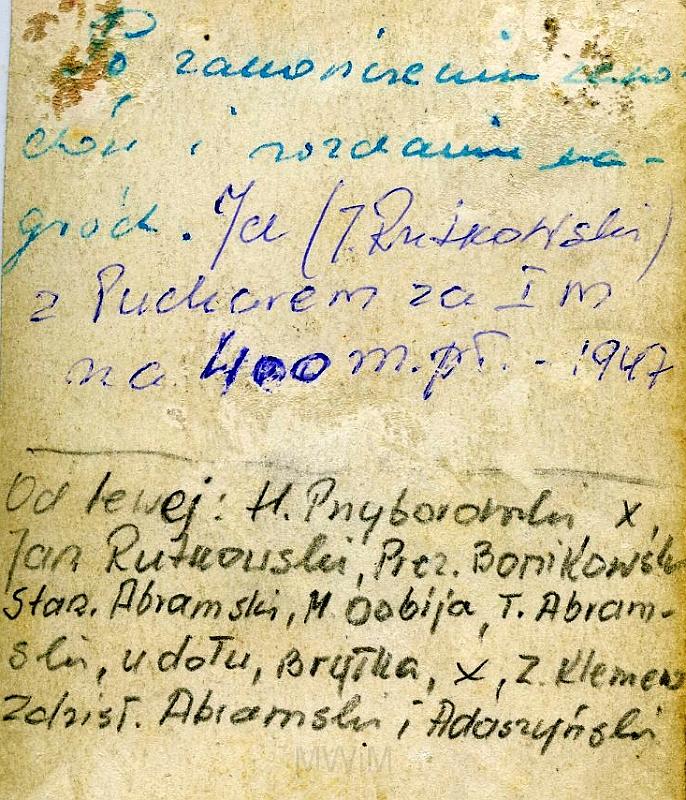 Po zakończeniu zawo-
dów i rozdaniu na-
gród. Ja (J. Rutkowski)
z Pucharem za I M
na 400 m. pł. - 1947
Od lewej: H. Przyborowski x,
Jan Rutkowski, Prez. Bonikowski
Stan. Abramski, M. Dobija, T. Abram-
ski, u dołu, Brytka, x, Z. Klemens
Zdzisł. Abramski i Adaszyński
MWiM